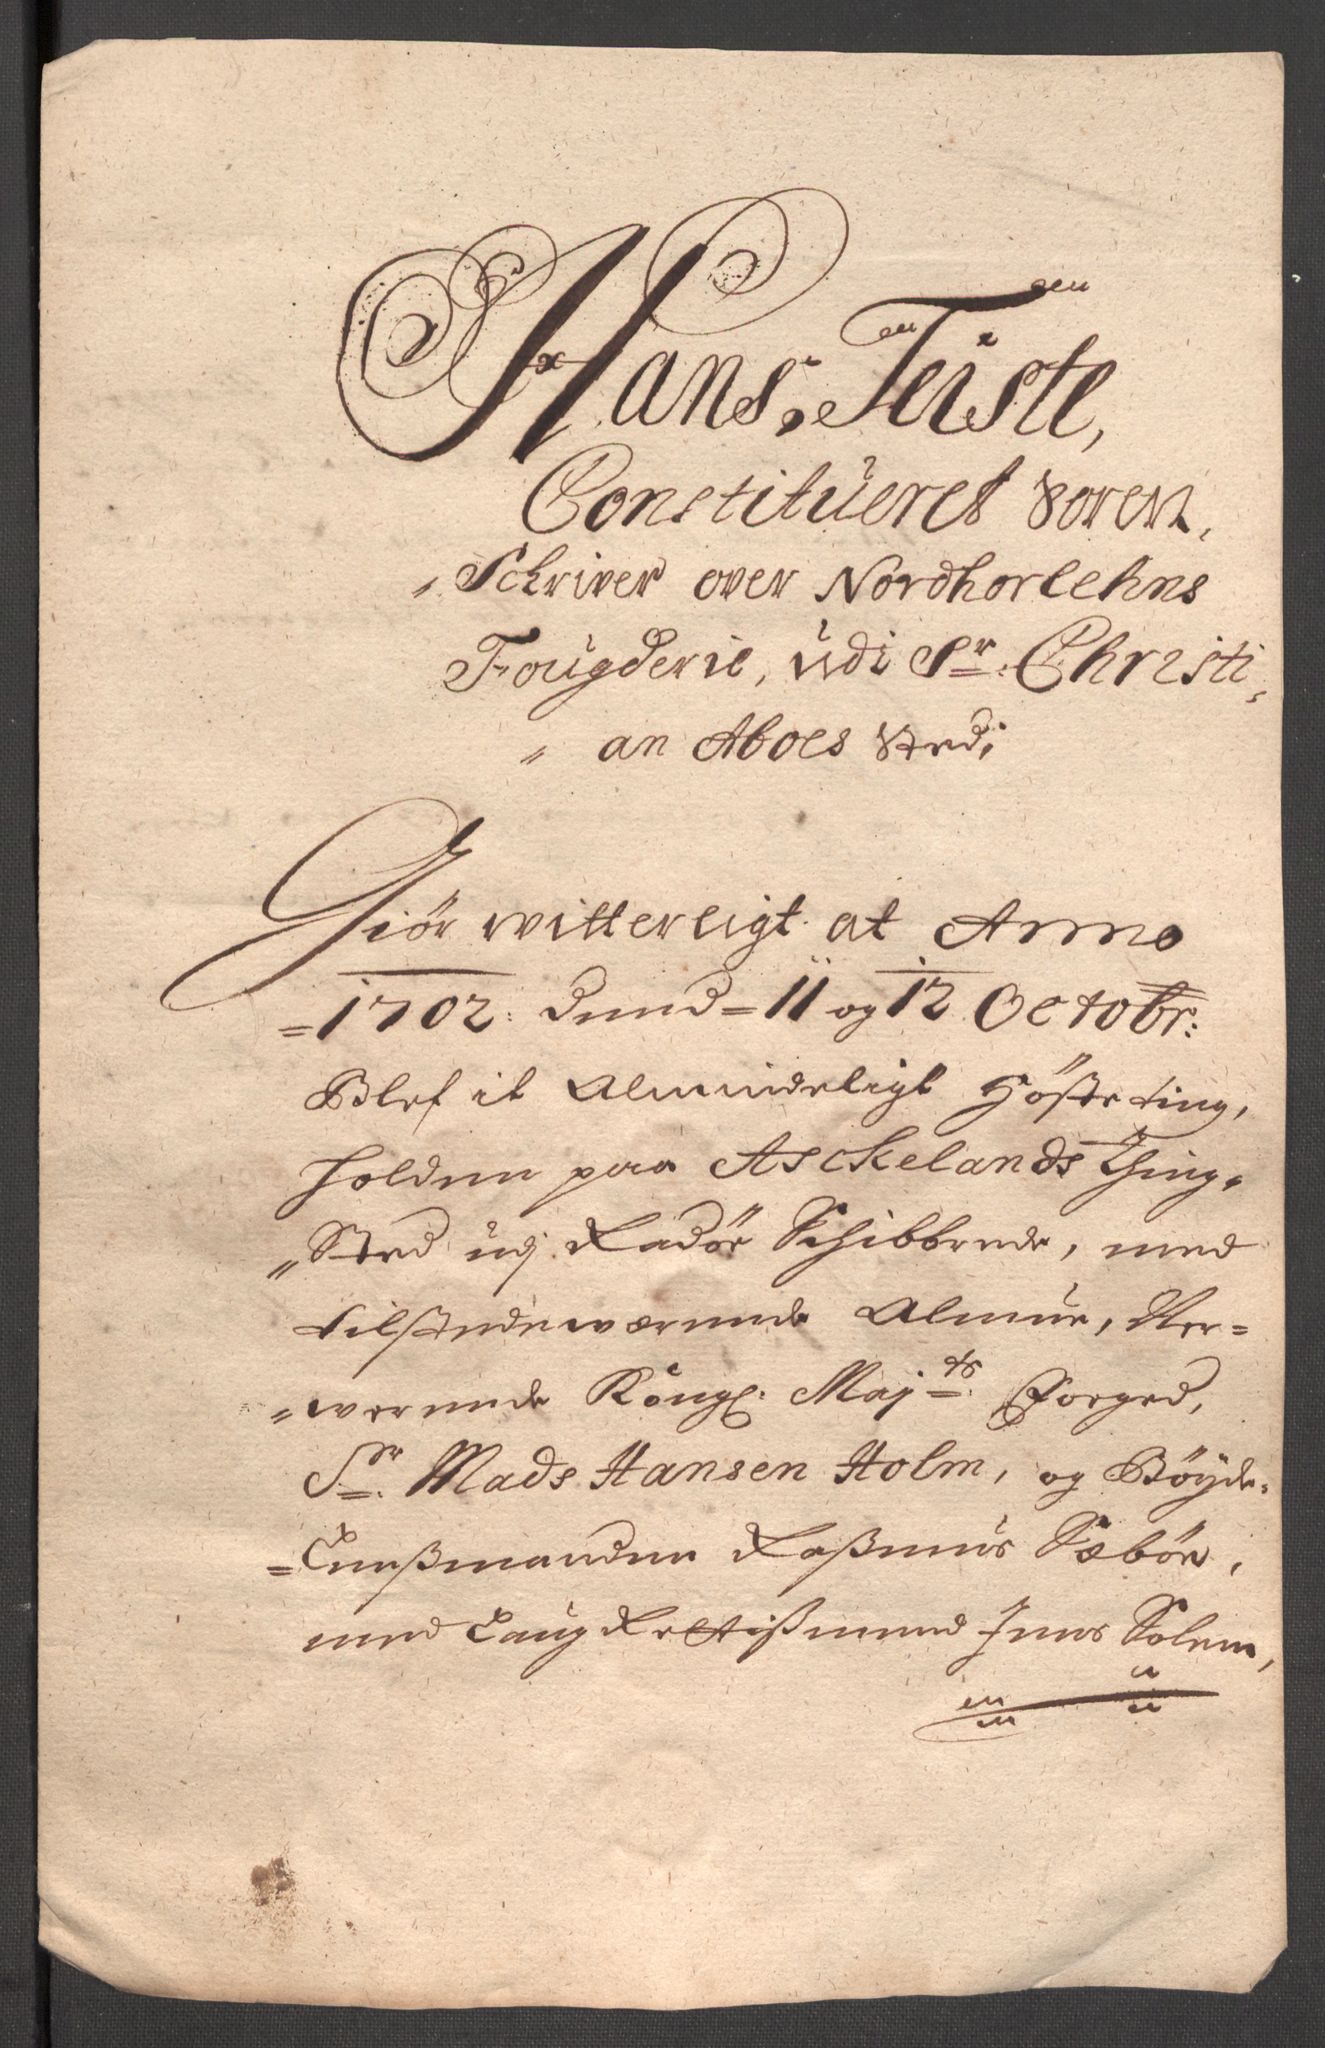 Hans Teiste,
Constitueret Soren,
„Schriver over Nordhorlehns
Fougderie, udi Sr. Christi„
„an Aboes Sted;
Giör witterligt at Anno
=1702: dend=11 og 12 Octobr:
Blef it Almindeligt Høste ting,
holden paa Asckelands Thing„
„Sted udj Radöe Schibbrede, med
tilstedeværende Almue, Nær=
„werende Kongl: Majts: Fogged,
Sr. Mads Hansen Holm, og Böyde=
=Lensmanden Rasmus Sæböe,
med Laug Rettismend Jens Solem,